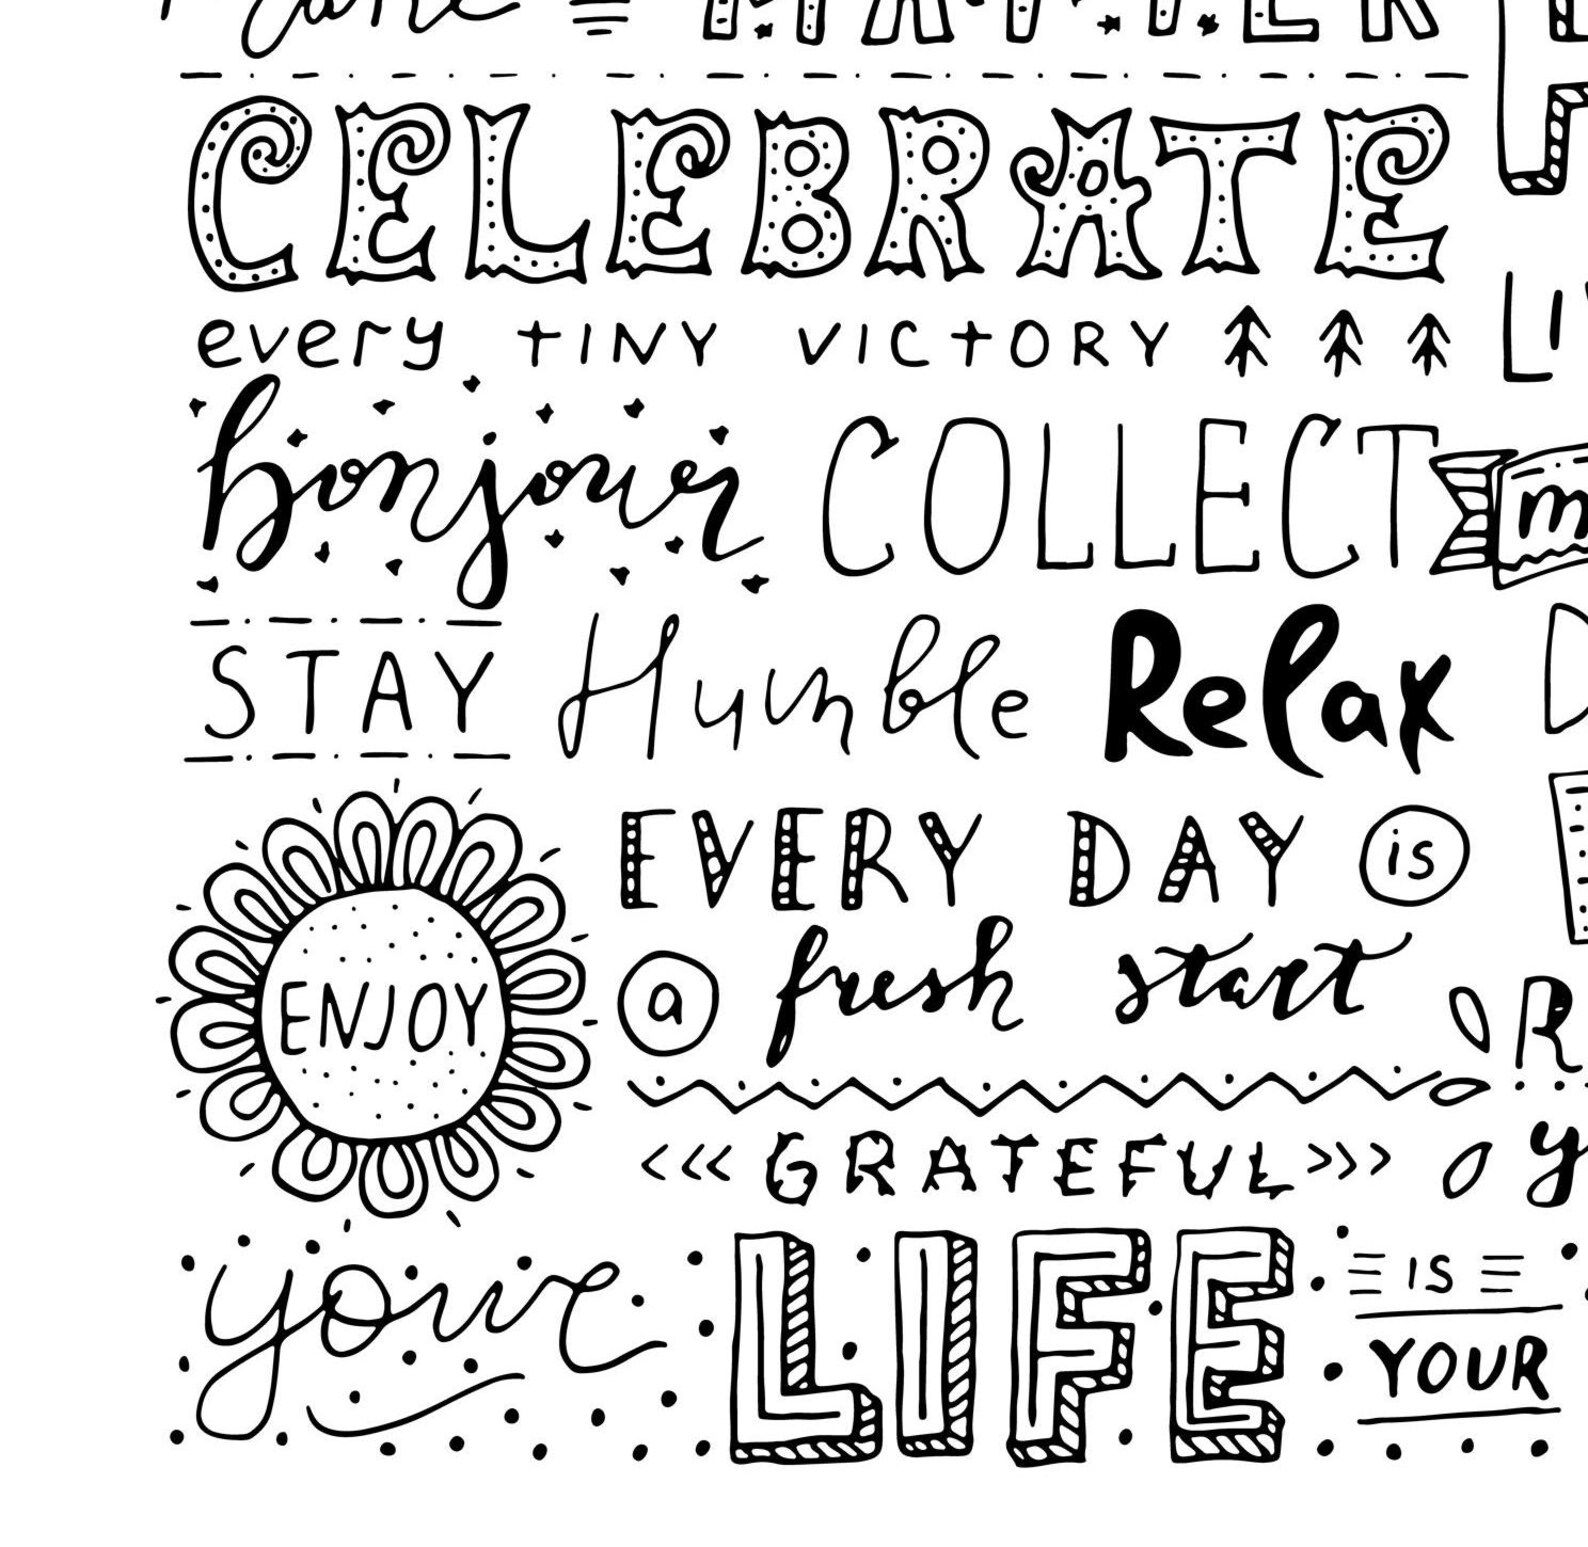 CELEBRATE
every TINY VICTORY
bonjour COLLECT
STAY Humble Relax
EVERY DAY is
a fresh start
ENJOY
GRATEFUL
your LIFE IS
YOUR